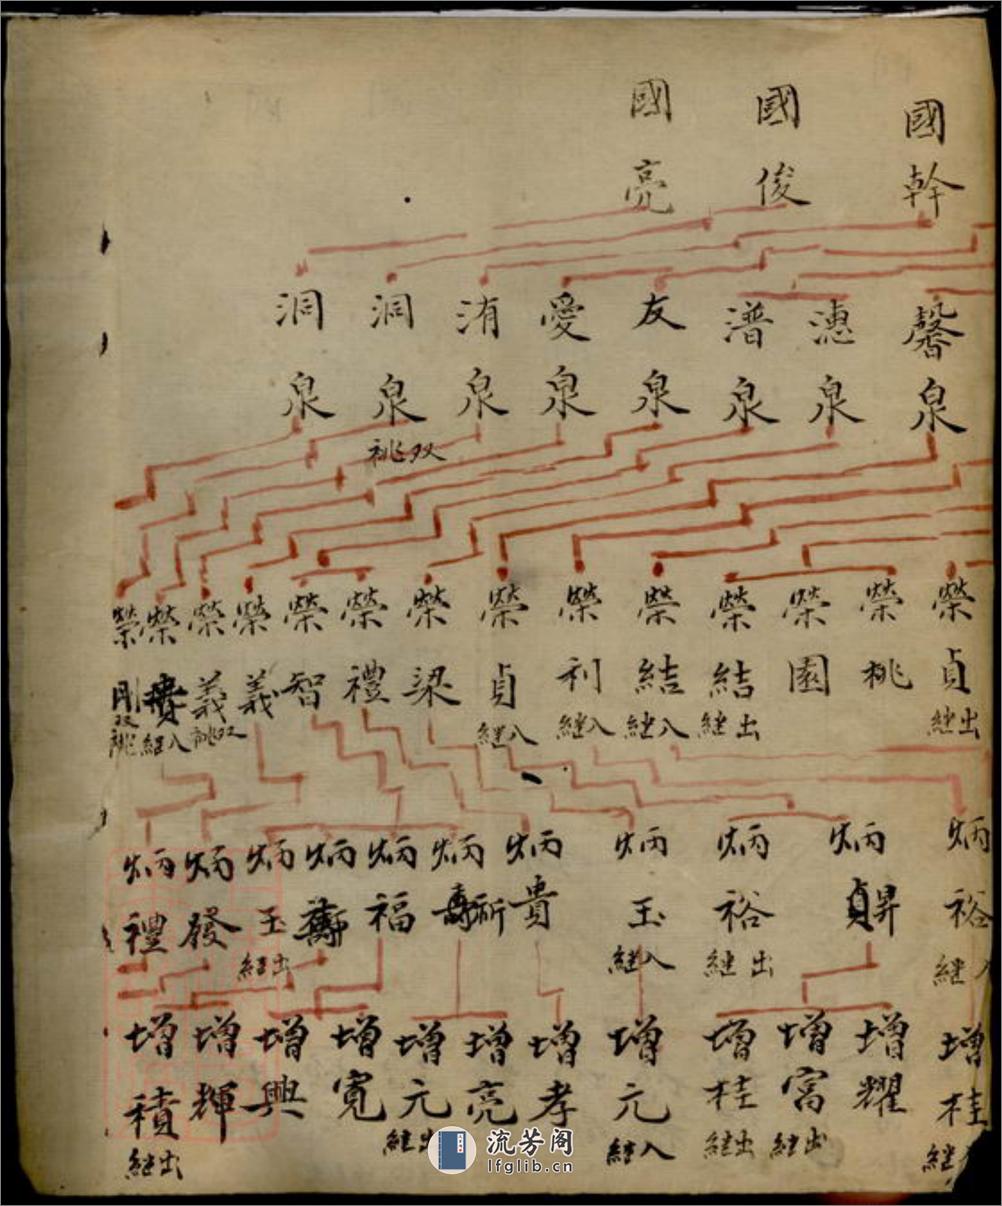 國幹
國俊
國亮
馨泉
漶泉
潽泉
友泉
愛泉
洧泉
洞泉 双祧
洞泉
榮貞 出継
榮桃
榮園
榮結 出継
榮結 入継
榮利 入継
榮貞 入継
榮梁
榮禮
榮智
榮義
榮義 双祧
榮貴 入継
榮剛 双祧
炳裕 入継
炳昇
炳裕 出継
炳玉 入継
炳貴
炳祈
炳福
炳壽
炳玉 出継
炳發
炳禮
增桂 入継
增耀
增富 出継
增桂 出継
增元 入継
增孝
增亮
增元 出継
增寛
增興
增輝
增積 出継
流芳阁
lfglib.cn